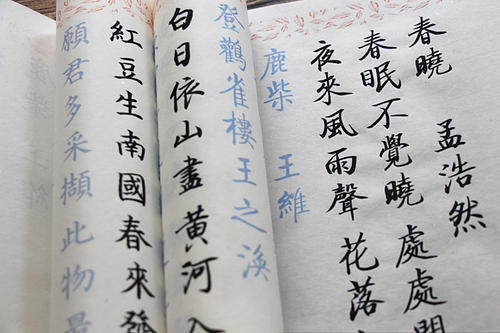 春曉 孟浩然
春眠不覺曉 處處
夜來風雨聲 花落
鹿柴 王維
登鸛雀樓 王之渙
白日依山盡 黄河入
紅豆生南國 春來發
願君多采擷 此物最